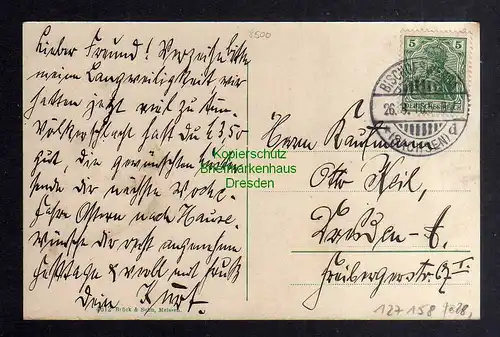 8500
Lieber Freund! Verzeihe bitte
meine Langweiligkeit wir
hatten jetzt viel zu tun.
Völkerschlacht hast du 4 3,50
gut, die gewünschten Karten
sende dir nächste Woche.
Fahre Ostern nach Hause.
Wünsche dir recht angenehme
Festtage & verbl. mit Gruß
Dein Kurt.
5
BISCHOFSW
DEUTSCHES REICH
26. 3.
* (SACHSEN) d
Herrn Kaufmann
Otto Weil,
Dresden-A.
Freibergerstr.
Kopierschutz
Briefmarkenhaus
Dresden
Brück & Sohn, Meissen.
127158